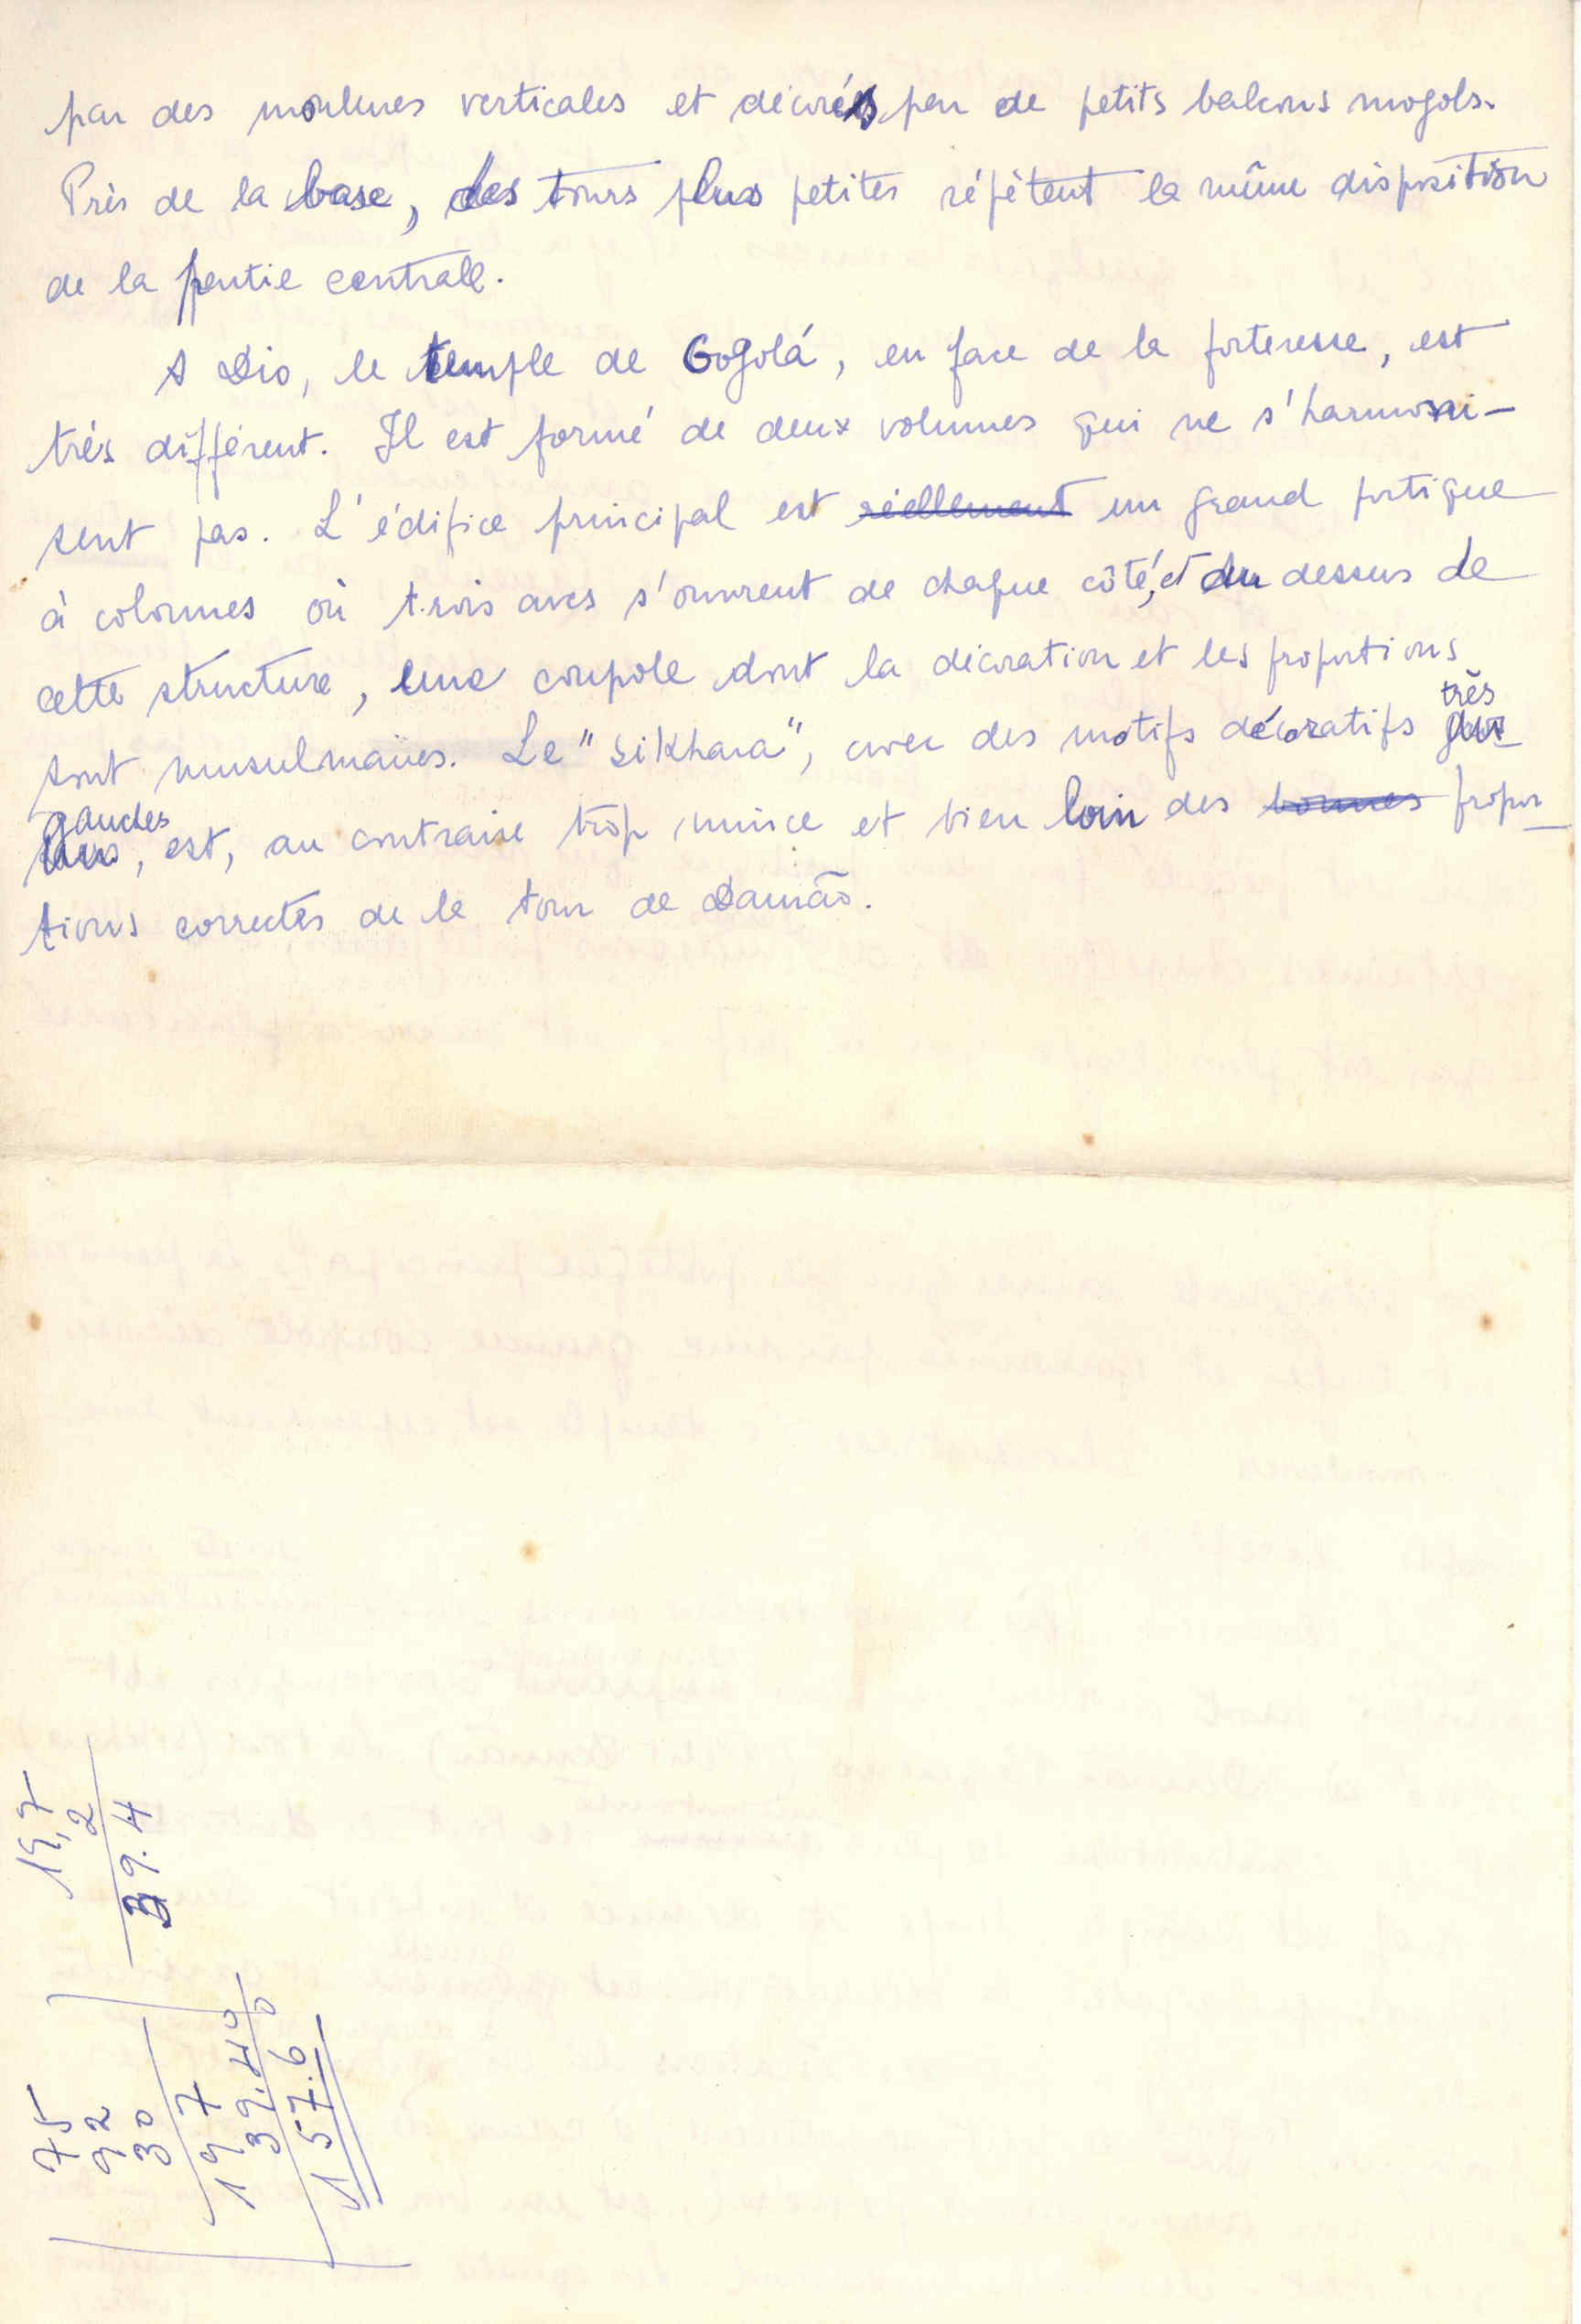 par des moulures verticales et décorés par de petits balcons mogols.
Près de la base, des tours plus petites répètent la même disposition
de la partie centrale.
A Dio, le temple de Gogolá, en face de la forteresse, est
très différent. Il est formé de deux volumes qui ne s'harmoni-
sent pas. L'édifice principal est réellement un grand portique
à colonnes où trois arcs s'ouvrent de chaque côté, et au dessus de
cette structure, une coupole dont la décoration et les proportions
sont musulmanes. Le "sikhara", avec des motifs décoratifs très
gauches, est, au contraire trop mince et bien loin des bonnes propor-
tions correctes de la tour de Damão.
19,7
2
39.4
75
92
30
197
39.40
157.60